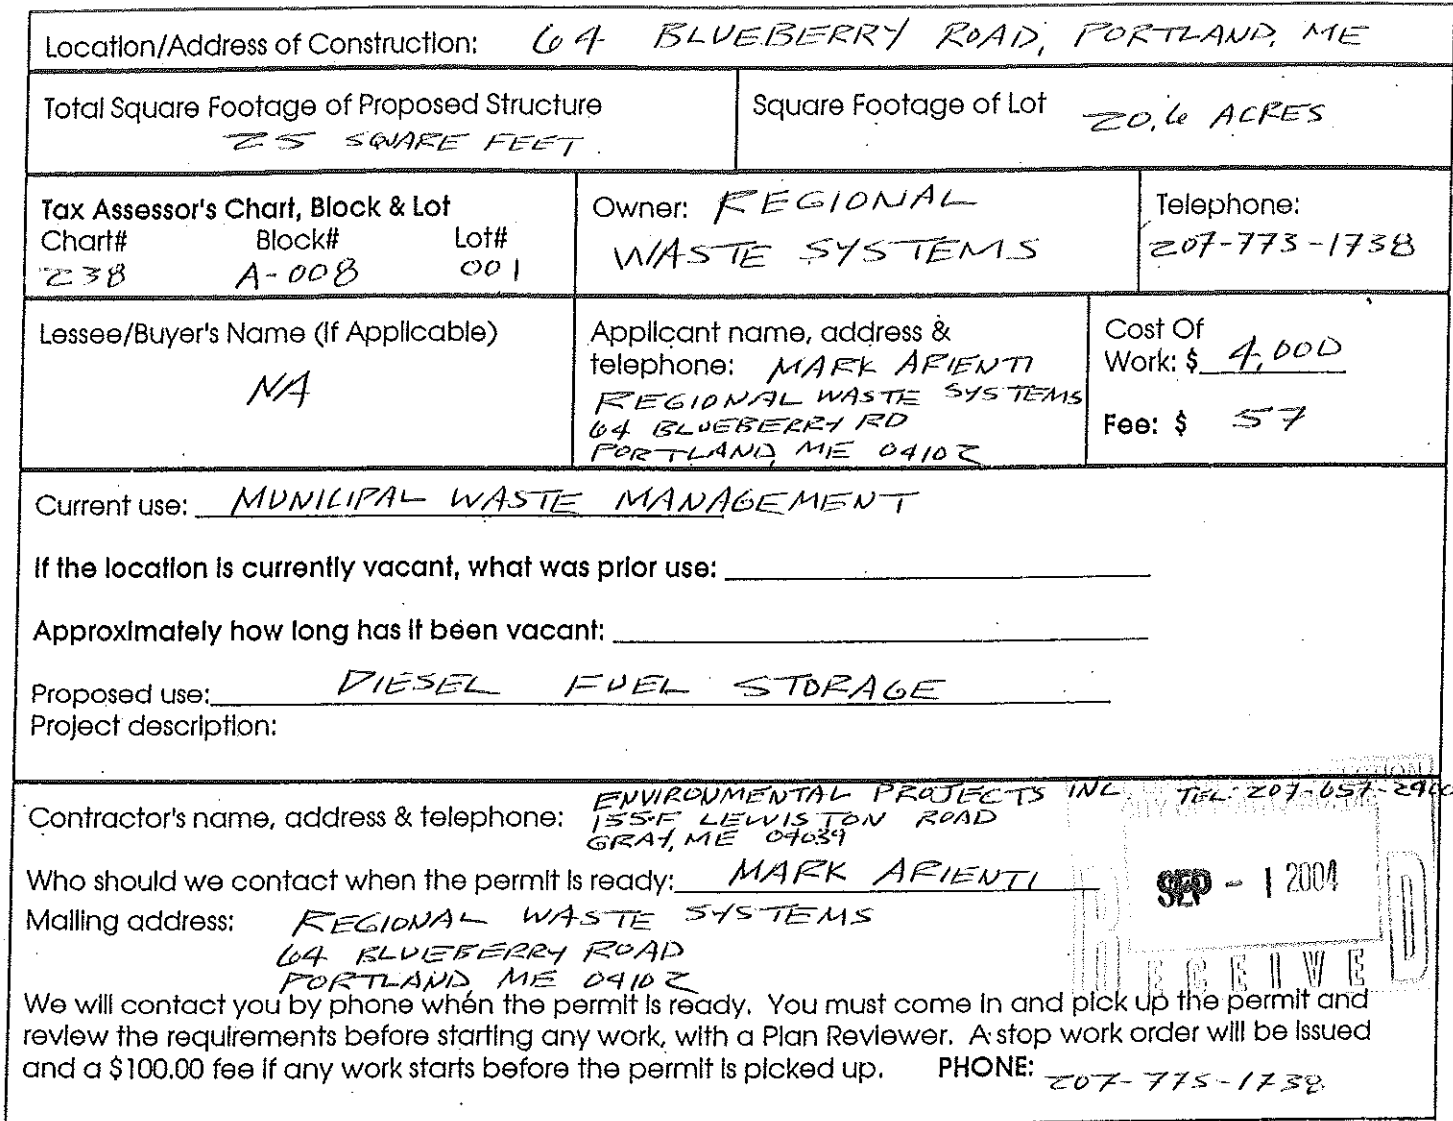 Location/Address of Construction: 64 BLUEBERRY ROAD, PORTLAND, ME
Total Square Footage of Proposed Structure
25 SQUARE FEET.
Square Footage of Lot 20.6 ACRES
Tax Assessor's Chart, Block & Lot
Chart# Block# Lot#
238 A-008 001
Owner: REGIONAL
WASTE SYSTEMS
Telephone:
207-773-1738
Lessee/Buyer's Name (If Applicable)
NA
Applicant name, address &
telephone: MARK ARIENTI
REGIONAL WASTE SYSTEMS
64 BLUEBERRY RD
PORTLAND, ME 04102
Cost Of
Work: $ 4,000
Fee: $ 57
Current use: MUNICIPAL WASTE MANAGEMENT
If the location is currently vacant, what was prior use:
Approximately how long has it been vacant:
Proposed use: DIESEL FUEL STORAGE
Project description:
Contractor's name, address & telephone: ENVIRONMENTAL PROJECTS INC TEL: 207-657-
155F LEWISTON ROAD
GRAY, ME 04039
Who should we contact when the permit is ready: MARK ARIENTI
SEP - 1 2004
RECEIVED
Mailing address: REGIONAL WASTE SYSTEMS
64 BLUEBERRY ROAD
PORTLAND ME 04102
We will contact you by phone when the permit is ready. You must come in and pick up the permit and
review the requirements before starting any work, with a Plan Reviewer. A stop work order will be issued
and a $100.00 fee if any work starts before the permit is picked up. PHONE: 207-775-1738